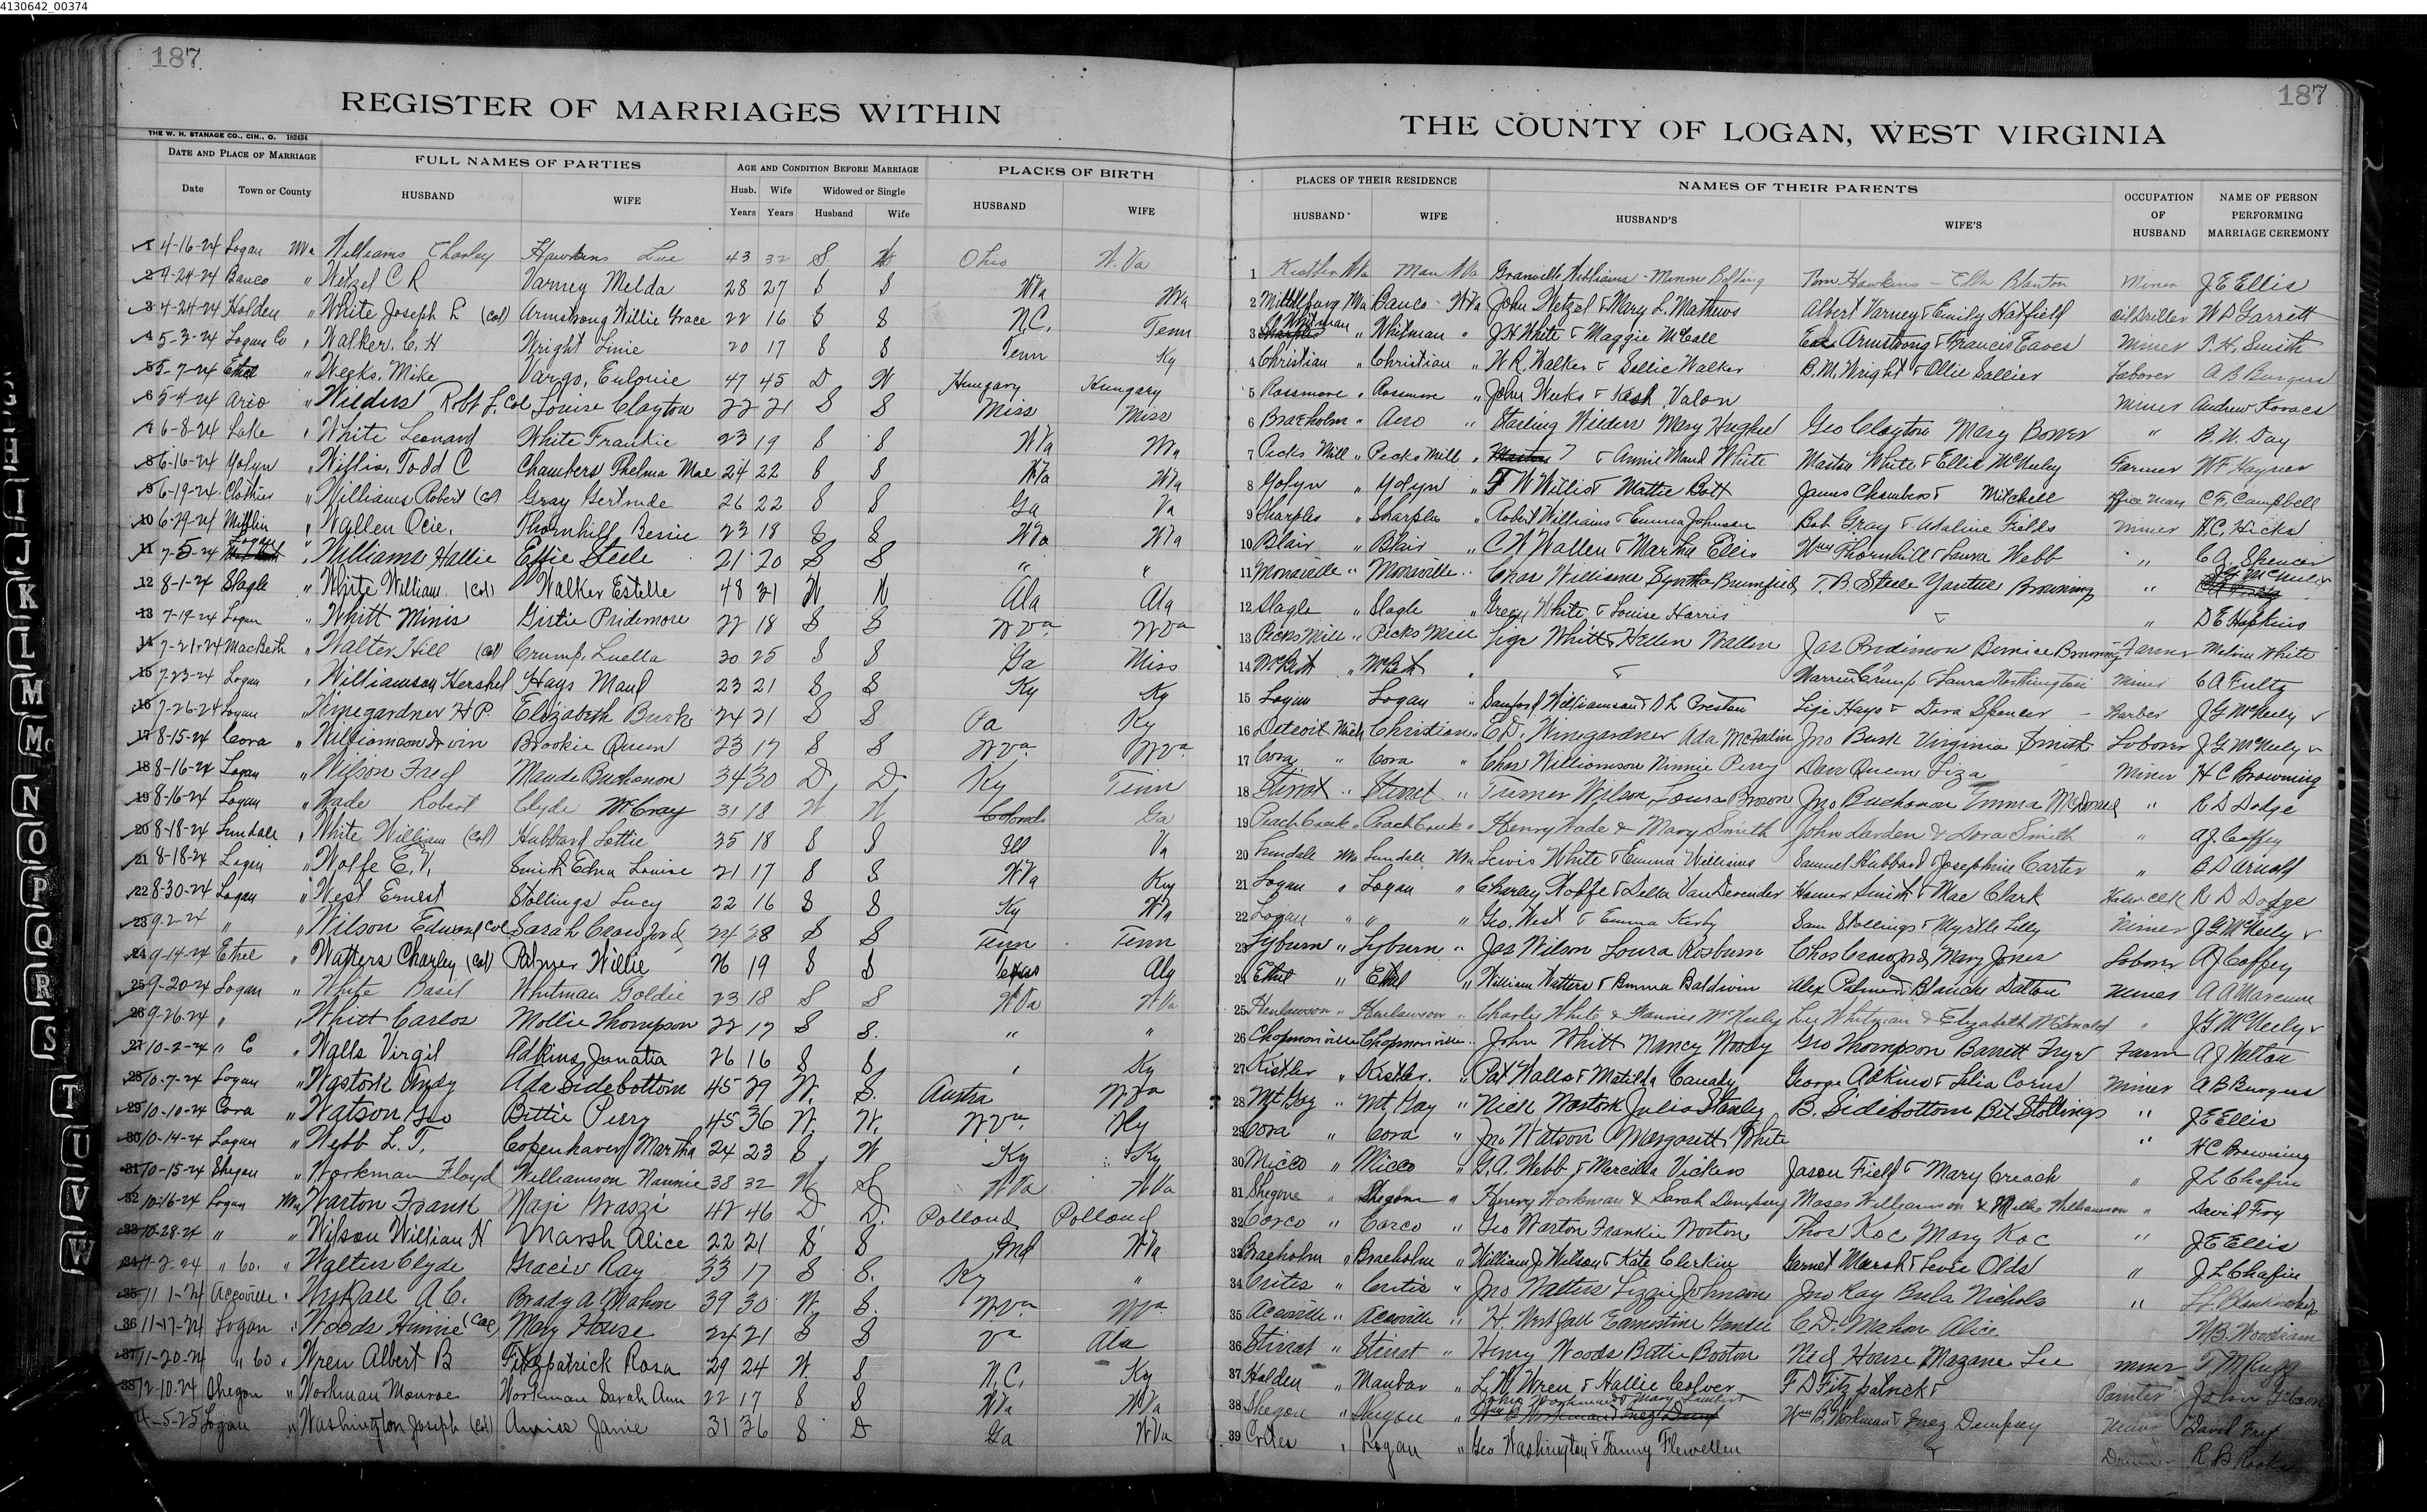 4130642_00374
187
187
REGISTER OF MARRIAGES WITHIN
THE COUNTY OF LOGAN, WEST VIRGINIA
THE W. H. STANAGE CO., CIN., O. 182434
DATE AND PLACE OF MARRIAGE
FULL NAMES OF PARTIES
AGE AND CONDITION BEFORE MARRIAGE
PLACES OF BIRTH
PLACES OF THEIR RESIDENCE
NAMES OF THEIR PARENTS
OCCUPATION OF HUSBAND
NAME OF PERSON PERFORMING MARRIAGE CEREMONY
Date Town or County HUSBAND WIFE Husb. Years Wife Years Widowed or Single Husband Wife HUSBAND WIFE
HUSBAND WIFE HUSBAND'S WIFE'S
1 4-16-24 Logan WVa Williams Charley Hawkins Lue 43 32 S W Ohio W.Va
2 9-24-24 Banco " Wetzel C R Varney Melda 28 27 S S WVa WVa
3 4-24-24 Holden " White Joseph L (Col) Armstrong Willie Grace 22 16 S S N.C. Tenn
4 5-3-24 Logan Co " Walker, C. H Wright Linie 20 17 S S Tenn Ky
5 5-7-24 Ethel " Weeks, Mike Vargo, Eulonie 47 45 D W Hungary Hungary
6 5-4-24 " Wilders Robt L. Col Louise Clayton 22 21 S S Miss Miss
7 6-8-24 Lake " White Leonard White Frankie 23 19 S S WVa WVa
8 6-16-24 Yolyn " Willis, Todd C Chambers Thelma Mae 24 22 S S WVa WVa
9 6-19-24 Clothier " Williams Robert (Col) Gray Gertrude 26 22 S S Ga Va
10 6-29-24 Mifflin " Wallen Ocie, Thornhill Bessie 23 18 S S WVa WVa
11 7-5-24 Logan " Williams Hallie Effie Steele 21 20 S S " "
12 8-1-24 Slagle " White William (Col) Walker Estelle 48 31 W W Ala Ala
13 7-19-24 Logan " Whitt Minis Gistie Pridemore 22 18 S S W Va W Va
14 7-21-24 MacBeth " Walter Hill (Col) Crump, Luella 30 25 S S Ga Miss
15 7-23-24 Logan " Williamson Hershel Hays Maud 23 21 S S Ky Ky
16 7-26-24 Logan " Winegardner H P. Elizabeth Burk 24 21 S S Pa Ky
17 8-15-24 Cora " Williamson Irvin Brookie Queen 23 17 S S W Va W Va
18 8-16-24 Logan " Wilson Fred Maude Buchanon 34 30 D D Ky Tenn
19 8-16-24 Logan " Wade Robert Clyde McCray 31 18 W W Colorado Ga
20 8-18-24 Lundale " White William (Col) Hubbard Lottie 35 18 S S Ill Va
21 8-18-24 Logan " Wolfe E. V. Smith Edna Louise 21 17 S S WVa Ky
22 8-30-24 Logan " West Ernest Stollings Lucy 22 16 S S Ky WVa
23 9-2-24 " " Wilson Edward Col Sarah Crawford 24 28 S S Tenn Tenn
24 9-14-24 Ethel " Watters Charley (Col) Palmer Willie 26 19 S S Texas Ala
25 9-20-24 Logan " White Basil Whitman Goldie 23 18 S S WVa WVa
26 9-26-24 " " Whitt Carlos Mollie Thompson 22 17 S S. " "
27 10-2-24 " Co " Walls Virgil Adkins Junatia 26 16 S S " Ky
28 10-7-24 Logan " Wastork Andy Ada Sidebottom 45 29 W. S. Austra W Va
29 10-10-24 Cora " Watson Geo Bittie Perry 45 36 W. W. W. Va. Ky
30 10-14-24 Logan " Webb L. T. Copenhaver Martha 24 23 S W Ky Ky
31 10-15-24 Shegon " Workman Floyd Williamson Nannie 38 32 W S WVa WVa
32 10-16-24 Logan WVa Warton Frank Nagi Graszi 42 46 D D. Polland Polland
33 10-28-24 " " Wilson William H Marsh Alice 22 21 S S Ind WVa
34 11-2-24 " Co. " Walters Clyde Gracie Ray 33 17 S S. Ky "
35 11-1-24 Accoville " A C. Brady A Mahon 39 30 W. S. W Va W Va
36 11-17-24 Logan " Woods Hunnie (Col) Mary House 24 21 S S Va Ala
37 11-20-24 " Co " Wren Albert B Fitzpatrick Rosa 29 24 W. S N.C. Ky
38 12-10-24 Shegon " Workman Monroe Workman Sarah Ann 22 17 S S WVa WVa
4-5-25 Logan " Washington Joseph (Col) Janie 31 36 S D Ga WVa
1 Kistler WVa Man WVa Granville Williams - Minnie Bolding Tom Hawkins - Ella Blanton Miner J E Ellis
2 Middleburg WVa Banco WVa John Wetzel & Mary L. Mathews Albert Varney & Emily Hatfield Oil Driller W D Garrett
3 Whitman " Whitman " J H White & Maggie McCall Armstrong & Francis Eaves Miner P. H. Smith
4 Christian " Christian " W R. Walker & Sallie Walker B. M. Wright & Ollie Sallier Laborer A B Burgess
5 Rossmore " Rossmore " John Weeks & Valon Miner Andrew Kovacs
6 Braeholm " " Starling Wilders Mary Hughes Geo Clayton Mary Bower " B. W. Day
7 Pecks Mill " Pecks Mill " ? & Annie Maud White Maston White & Ellie McNeely Farmer W F Hayner
8 Yolyn " Yolyn " F W Willis & Mattie Bott James Chambers & Mitchell Office Man C F. Campbell
9 Sharples " Sharples " Robert Williams & Emma Johnson Bob Gray & Adaline Fields Miner H. C. Hicks
10 Blair " Blair " C W Wallen & Martha Ellis Wm Thornhill & Laura Webb " C A. Spencer
11 Monaville " Monaville " Chas Williams Syntha Brumfield T. B. Steele Yantus Browning " J G McNeely
12 Slagle " Slagle " Greely White & Louise Harris & " D E Hopkins
13 Pecks Mill " Pecks Mill Lige Whitt & Hellen Wallen Jas Pridimon Bernice Browning Farmer Melvin White
14 McBeth " McBeth " & Warrie Crump & Laura Worthington Miner C A Fultz
15 Logan Logan " Sanford Williamson & D L Preston Lige Hays & Dora Spencer - Barber J G McNeely
16 Detroit Mich Christian " C D. Winegardner Ada McFadin Jno Burk Virginia Smith Laborer J G McNeely
17 Cora " Cora " Chas Williamson Ninnie Perry Dave Queen Liza Miner H C Browning
18 Stirrat " Stirrat " Turner Wilson, Loura Brown Jno Buchanon Emma McDonald " R D Dodge
19 Peach Creek " Peach Creek " Henry Wade & Mary Smith John Darden & Dora Smith " A J. Coffey
20 Lundale WVa Lundale WVa Lewis White & Emma Williams Samuel Hubbard & Josephine Carter " B D Arnold
21 Logan " Logan " Charley Wolfe & Della VanDevender Homer Smith & Mae Clark R D Dodge
22 Logan " " " Geo. West & Emma Kirby Sam Stollings & Myrtle Lilly Miner J G McNeely
23 Lyburn " Lyburn " Jas Wilson Loura Rosburn Chas Crawford, Mary Jones Laborer A J Coffey
24 Ethel " Ethel " William Watters & Emma Baldwin Alex Palmer & Blanche Dalton Miner A A Marcum
25 Henlawson " Henlawson " Charlie White & Fannie McNeely Lee Whitman & Elizabeth McDonald " J G McNeely
26 Chapmanville Chapmanville " John Whitt Nancy Woody Geo Thompson Barrett Frye Farm A J Walton
27 Kistler " Kistler. " Pat Walls & Matilda Canady George Adkins & Lelia Corns Miner A B Burgess
28 Mt Gay " Mt Gay " Nick Wastork Julia Stanley B. Sidebottom Bet Stollings " J E Ellis
29 Cora " Cora " Jno Watson Margarett White " H C Browning
30 Micco " Micco " G. A. Webb & Mercilla Vickers Jason Field & Mary Creach " J L Chafin
31 Shegon " Shegon " Henry Workman & Sarah Dempsey Moses Williamson & Milla Williamson " David Fry
32 Corco " Corco " Geo Warton Frankie Worton Thos Koc Mary Koc " J E Ellis
33 Braeholm " Braeholm " William J Wilson & Kate Clerkin Garnet Marsh & Levie Olds " J L Chafin
34 Crites " Crites " Jno Walters Lizzie Johnson Jno Ray Bula Nichols "
35 Accoville " Accoville " H. Westfall Earnestine Yandle C. D. Mahon Alice W B. Woodiam
36 Stirrat " Stirrat " Henry Woods Bittie Booton Ned House Mazane Lee Miner
37 Holden " Manbar " L. W. Wren & Hallie Colver F D Fitzpatrick & Painter John
38 Shegon " Shegon " Workman & Mary Lambert Wm B. Workman & Inez Dempsey Miner David Fry
39 Crites " Logan " Geo Washington & Fanny Flewellen & R. B
H
I
J
K
L
M
Mc
N
O
P
Q
R
S
T
U
V
W